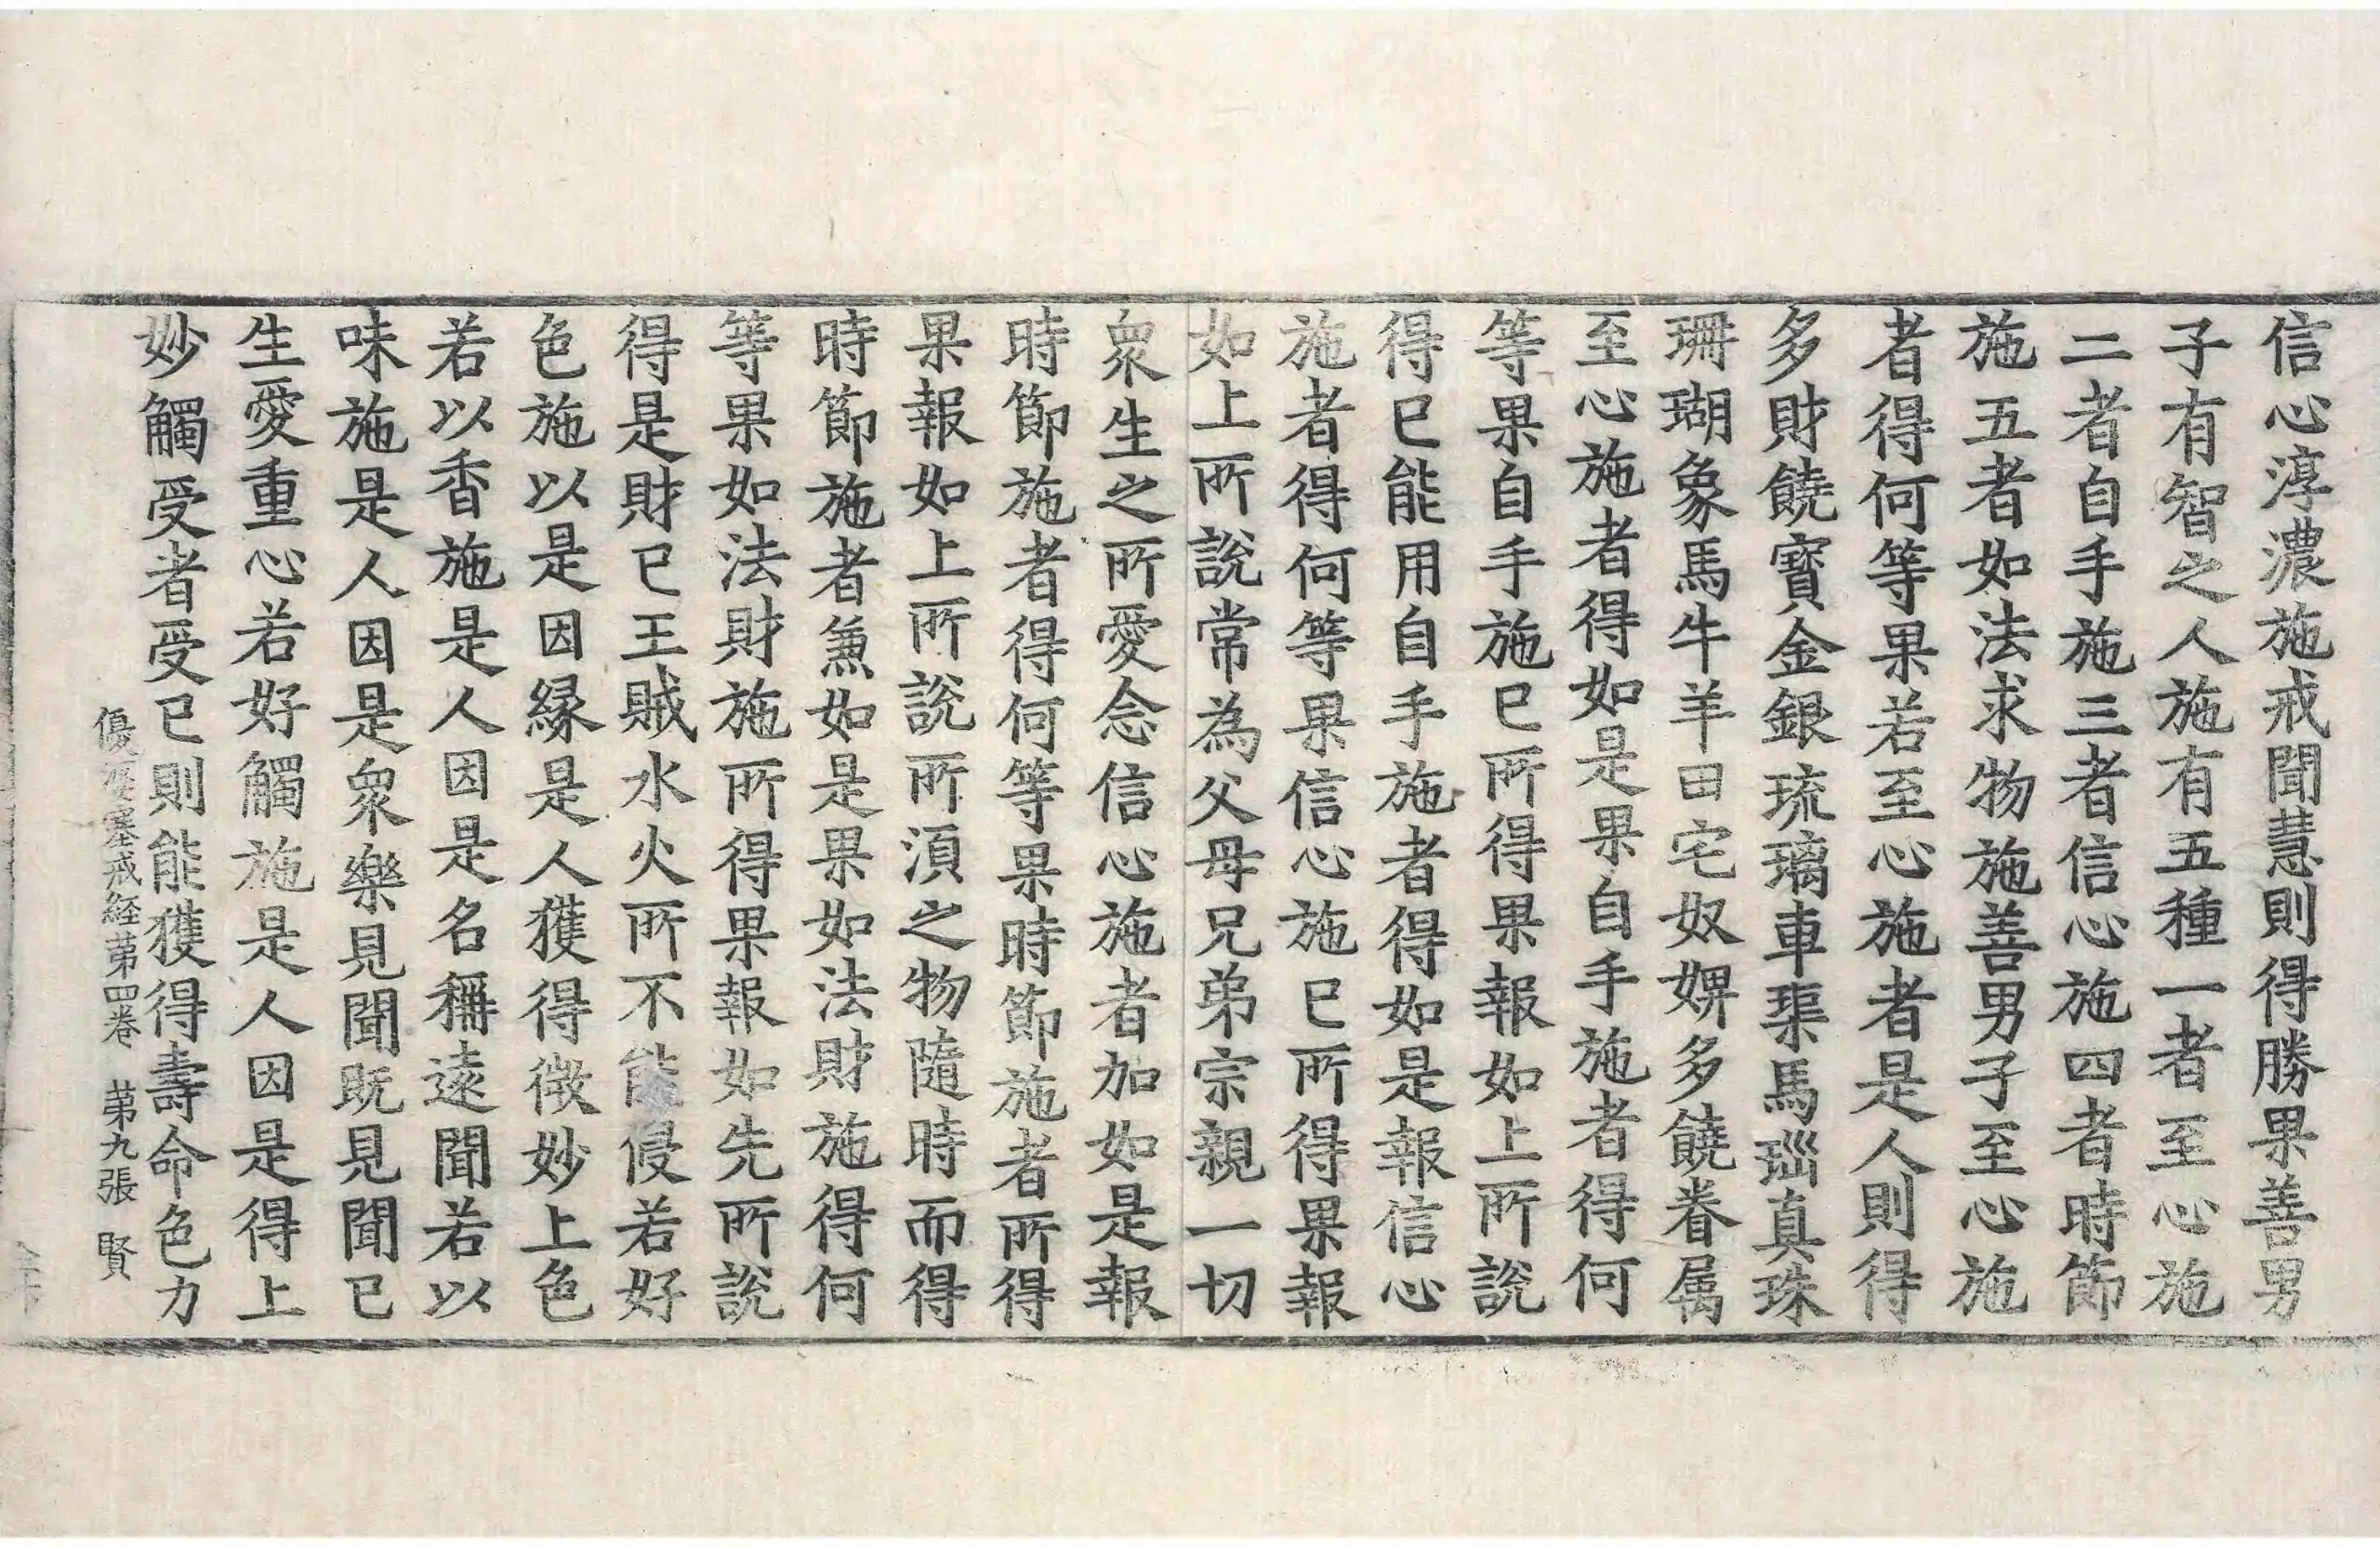 信心淳濃施戒聞慧則得勝果善男
子有智之人施有五種一者至心施
二者自手施三者信心施四者時節
施五者如法求物施善男子至心施
者得何等果若至心施者是人則得
多財饒寶金銀琉璃車璖馬瑙真珠
珊瑚象馬牛羊田宅奴婢多饒眷属
至心施者得如是果自手施者得何
等果自手施已所得果報如上所說
得已能用自手施者得如是報信心
施者得何等果信心施已所得果報
如上所說常為父母兄弟宗親一切
衆生之所愛念信心施者加如是報
時節施者得何等果時節施者所得
果報如上所說所湏之物隨時而得
時節施者兼如是果如法財施得何
等果如法財施所得果報如先所說
得是財已王賊水火所不能侵若好
色施以是因緣是人獲得微妙上色
若以香施是人因是名稱遠聞若以
味施是人因是衆樂見聞既見聞已
生愛重心若好觸施是人因是得上
妙觸受者受已則能獲得壽命色力
優婆塞戒経苐四卷 苐九張 賢